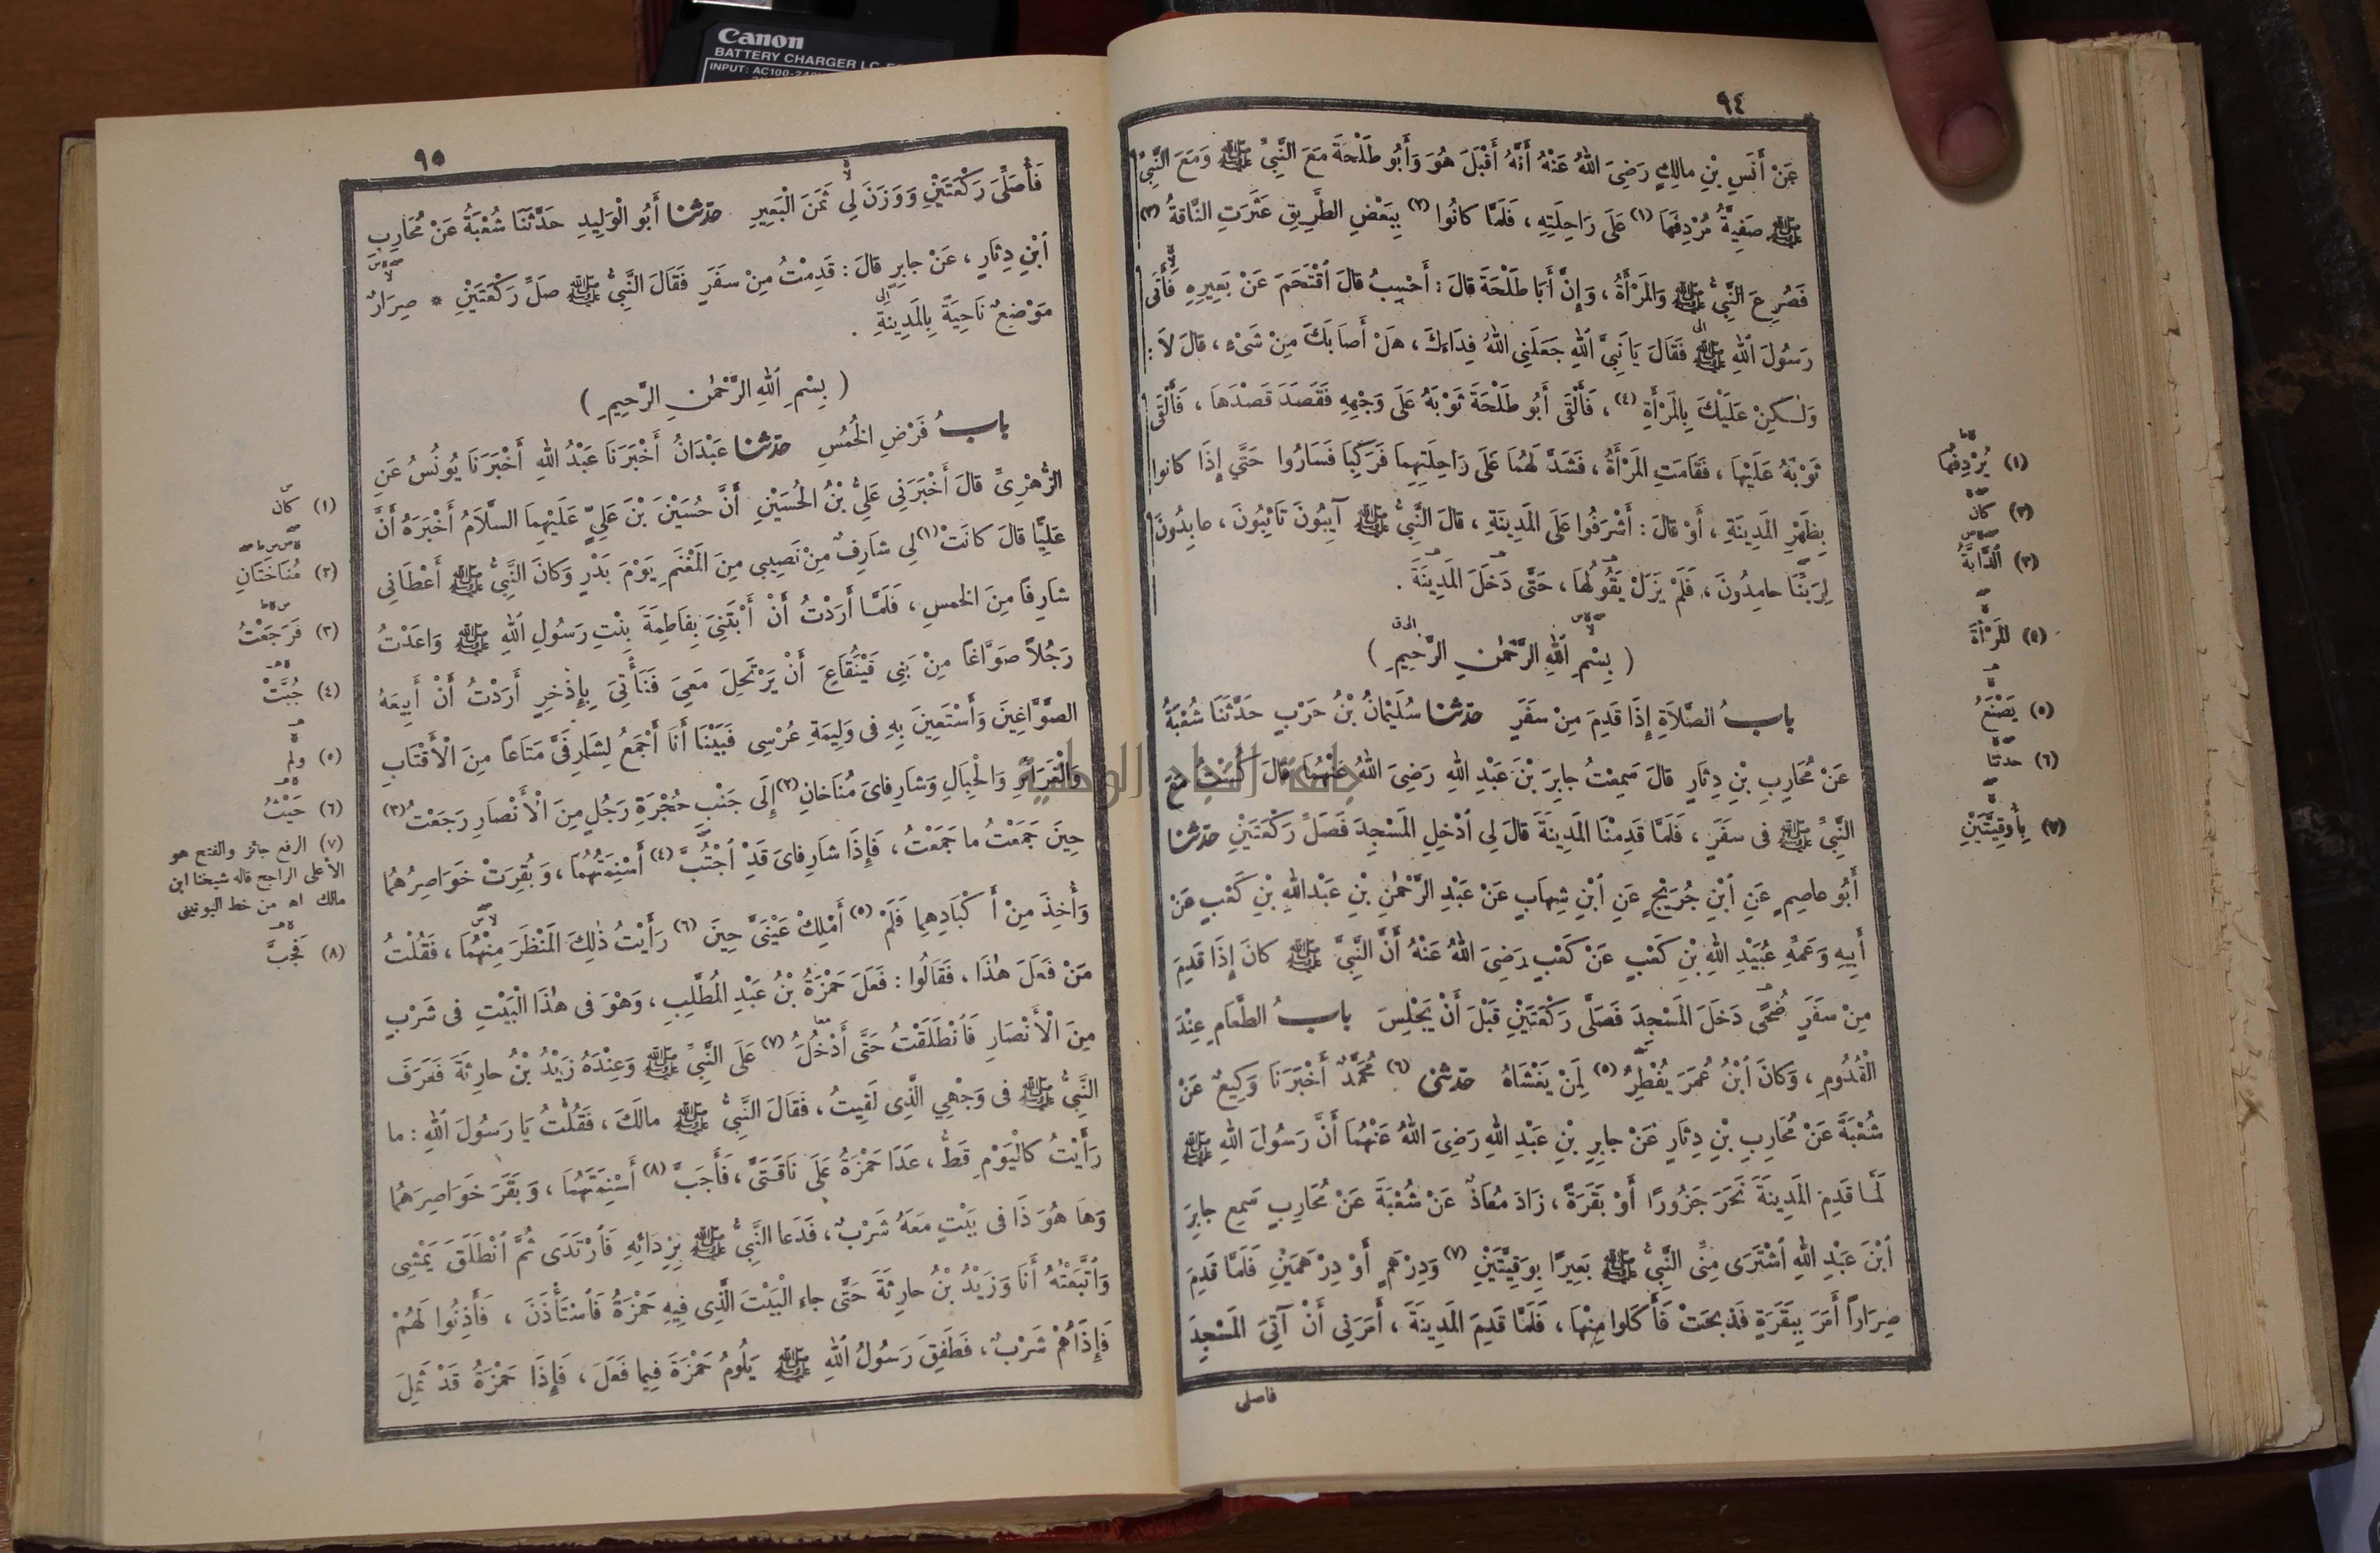 Canon
BATTERY CHARGER LC-E
INPUT: AC100-240V
٩٤
عَنْ أَنَسِ بْنِ مالِكٍ رَضِىَ اللهُ عَنْهُ أَنَّهُ أَقْبَلَ هُوَ وَأَبُو طَلْحَةَ مَعَ النَّبِىِّ ﷺ وَمَعَ النَّبِىِّ
ﷺ صَفِيَّةُ مُرْدِفَهَا (١) عَلَى رَاحِلَتِهِ ، فَلَمَّا كانُوا (٢) بِبَعْضِ الطَّرِيقِ عَثَرَتِ النَّاقَةُ (٣)
فَصُرِعَ النَّبِىُّ ﷺ وَالمَرْأَةُ ، وَإِنَّ أَبَا طَلْحَةَ قالَ : أَحْسِبُ قالَ ٱقْتَحَمَ عَنْ بَعِيرِهِ فَأَتَى
رَسُولَ ٱللهِ ﷺ فَقَالَ يَا نَبِىَّ ٱللهِ جَعَلَنِى اللهُ فِدَاءَكَ ، هَلْ أَصَابَكَ مِنْ شَىْءٍ ، قالَ لاَ :
وَلٰكِنْ عَلَيْكَ بِالمَرْأَةِ (٤) ، فَأَلْقَى أَبُو طَلْحَةَ ثَوْبَهُ عَلَى وَجْهِهِ فَقَصَدَ قَصْدَهَا ، فَأَلْقَى
ثَوْبَهُ عَلَيْهَا ، فَقَامَتِ المَرْأَةُ ، فَشَدَّ لَهُمَا عَلَى رَاحِلَتِهِمَا فَرَكِبَا فَسَارُوا حَتَّى إِذَا كانوا
بِظَهْرِ المَدِينَةِ ، أَوْ قالَ : أَشْرَفُوا عَلَى المَدِينَةِ ، قالَ النَّبِىُّ ﷺ آيِبُونَ تَائِبُونَ ، عابِدُونَ
لِرَبِّنَا حامِدُونَ ، فَلَمْ يَزَلْ يَقُولُهَا ، حَتَّى دَخَلَ المَدِينَةَ .
( بِسْمِ ٱللهِ الرَّحْمٰنِ الرَّحِيمِ )
بابُ الصَّلاَةِ إِذَا قَدِمَ مِنْ سَفَرٍ حدّثنا سُلَيْمانُ بْنُ حَرْبٍ حَدَّثَنَا شُعْبَةُ
عَنْ مُحَارِبِ بْنِ دِثارٍ قالَ سَمِعْتُ جابِرَ بْنَ عَبْدِ اللهِ رَضِىَ اللهُ عَنْهُمَا قالَ كُنْتُ مَعَ
النَّبِىِّ ﷺ فى سَفَرٍ ، فَلَمَّا قَدِمْنَا المَدِينَةَ قالَ لِى ٱدْخُلِ المَسْجِدَ فَصَلِّ رَكْعَتَيْنِ حدّثنا
أَبُو عاصِمٍ عَنِ ٱبْنِ جُرَيْجٍ عَنِ ٱبْنِ شِهَابٍ عَنْ عَبْدِ الرَّحْمٰنِ بْنِ عَبْدِ اللهِ بْنِ كَعْبٍ عَنْ
أَبِيهِ وَعَمِّهِ عُبَيْدِ اللهِ بْنِ كَعْبٍ عَنْ كَعْبٍ رَضِىَ اللهُ عَنْهُ أَنَّ النَّبِىَّ ﷺ كانَ إِذَا قَدِمَ
مِنْ سَفَرٍ ضُحًى دَخَلَ المَسْجِدَ فَصَلَّى رَكْعَتَيْنِ قَبْلَ أَنْ يَجْلِسَ بابُ الطَّعَامِ عِنْدَ
الْقُدُومِ ، وَكانَ ٱبْنُ عُمَرَ يُفْطِرُ (٥) لِمَنْ يَغْشَاهُ حدّثنى (٦) مُحَمَّدٌ أَخْبَرَنَا وَكِيعٌ عَنْ
شُعْبَةَ عَنْ مُحَارِبِ بْنِ دِثارٍ عَنْ جابِرِ بْنِ عَبْدِ اللهِ رَضِىَ اللهُ عَنْهُمَا أَنَّ رَسُولَ اللهِ ﷺ
لَمَّا قَدِمَ المَدِينَةَ نَحَرَ جَزُورًا أَوْ بَقَرَةً ، زَادَ مُعَاذٌ عَنْ شُعْبَةَ عَنْ مُحَارِبٍ سَمِعَ جابِرَ
ٱبْنَ عَبْدِ اللهِ ٱشْتَرَى مِنِّى النَّبِىُّ ﷺ بَعِيرًا بِوَقِيَّتَيْنِ (٧) وَدِرْهَمٍ أَوْ دِرْهَمَيْنِ فَلَمَّا قَدِمَ
صِرَاراً أَمَرَ بِبَقَرَةٍ فَذُبحَتْ فَأَكَلُوا مِنْهَا ، فَلَمَّا قَدِمَ المَدِينَةَ ، أَمَرَنِى أَنْ آتِىَ المَسْجِدَ
فاصلى
(١) يُرْدِفُهَا
(٢) كان
(٣) ٱلدَّابَّةُ
(٤) المَرْأَةَ
(٥) يَصْنَعُ
(٦) حدثنا
(٧) بِأُوقِيَّتَيْنِ
جامعة النجاح الوطنية
٩٥
فَأُصَلِّىَ رَكْعَتَيْنِ وَوَزَنَ لِى ثَمَنَ الْبَعِيرِ حدّثنا أَبُو الْوَلِيدِ حَدَّثَنَا شُعْبَةُ عَنْ مُحَارِبِ
ٱبْنِ دِثارٍ ، عَنْ جابِرٍ قالَ : قَدِمْتُ مِنْ سَفَرٍ فَقَالَ النَّبِىُّ ﷺ صَلِّ رَكْعَتَيْنِ * صِرَارٌ
مَوْضِعٌ نَاحِيَةً بِالمَدِينَةِ .
( بِسْمِ ٱللهِ الرَّحْمٰنِ الرَّحِيمِ )
بابُ فَرْضِ الخُمُسِ حدّثنا عَبْدَانُ أَخْبَرَنَا عَبْدُ اللهِ أَخْبَرَنَا يُونُسُ عَنِ
الزُّهْرِىِّ قالَ أَخْبَرَنِى عَلِىُّ بْنُ الحُسَيْنِ أَنَّ حُسَيْنَ بْنَ عَلِىٍّ عَلَيْهِمَا السَّلاَمُ أَخْبَرَهُ أَنَّ
عَلِيًّا قالَ كانَتْ (١) لِى شارِفٌ مِنْ نَصِيبِى مِنَ المَغْنَمِ يَوْمَ بَدْرٍ وَكانَ النَّبِىُّ ﷺ أَعْطَانِى
شارِفًا مِنَ الخمسِ ، فَلَمَّا أَرَدْتُ أَنْ أَبْتَنِىَ بِفَاطِمَةَ بِنْتِ رَسُولِ اللهِ ﷺ وَاعَدْتُ
رَجُلاً صَوَّاغًا مِنْ بَنِى قَيْنُقَاعَ أَنْ يَرْتَحِلَ مَعِىَ فَنَأْتِىَ بِإِذْخِرٍ أَرَدْتُ أَنْ أَبِيعَهُ
الصَّوَّاغِينَ وَأَسْتَعِينَ بِهِ فى وَلِيمَةِ عُرْسِى فَبَيْنَا أَنَا أَجْمَعُ لِشَارِفَىَّ مَتَاعاً مِنَ الْأَقْتَابِ
وَالْغَرَائِرِ وَالْحِبَالِ وَشارِفاىَ مُنَاخانِ (٢) إِلَى جَنْبِ حُجْرَةِ رَجُلٍ مِنَ الْأَنْصَارِ رَجَعْتُ (٣)
حِينَ جَمَعْتُ ما جَمَعْتُ ، فَإِذَا شارِفاىَ قَدْ ٱجْتُبَّ (٤) أَسْنِمَتُهُمَا ، وَبُقِرَتْ خَوَاصِرُهُمَا
وَأُخِذَ مِنْ أَكْبَادِهِمَا فَلَمْ (٥) أَمْلِكْ عَيْنَىَّ حِينَ (٦) رَأَيْتُ ذٰلِكَ المَنْظَرَ مِنْهُمَا ، فَقُلْتُ
مَنْ فَعَلَ هٰذَا ، فَقَالُوا : فَعَلَ حَمْزَةُ بْنُ عَبْدِ المُطَّلِبِ ، وَهْوَ فى هٰذَا الْبَيْتِ فى شَرْبٍ
مِنَ الْأَنْصَارِ فَٱنْطَلَقْتُ حَتَّى أَدْخُلَُ (٧) عَلَى النَّبِىِّ ﷺ وَعِنْدَهُ زَيْدُ بْنُ حارِثَةَ فَعَرَفَ
النَّبِىُّ ﷺ فى وَجْهِى الَّذِى لَقِيتُ ، فَقَالَ النَّبِىُّ ﷺ مالَكَ ، فَقُلْتُ يَا رَسُولَ اللهِ : ما
رَأَيْتُ كالْيَوْمِ قَطُّ ، عَدَا حَمْزَةُ عَلَى نَاقَتَىَّ ، فَأَجَبَّ (٨) أَسْنِمَتَهُمَا ، وَبَقَرَ خَوَاصِرَهُمَا
وَهَا هُوَ ذَا فى بَيْتٍ مَعَهُ شَرْبٌ ، فَدَعا النَّبِىُّ ﷺ بِرِدَائِهِ فَٱرْتَدَى ثُمَّ ٱنْطَلَقَ يَمْشِى
وَٱتَّبَعْتُهُ أَنَا وَزَيْدُ بْنُ حارِثَةَ حَتَّى جاءَ الْبَيْتَ الَّذِى فِيهِ حَمْزَةُ فَٱسْتَأْذَنَ ، فَأَذِنُوا لَهُمْ
فَإِذَا هُمْ شَرْبٌ ، فَطَفِقَ رَسُولُ ٱللهِ ﷺ يَلُومُ حَمْزَةَ فِيما فَعَلَ ، فَإِذَا حَمْزَةُ قَدْ ثَمِلَ
(١) كان
(٢) مُنَاخَتَانِ
(٣) فَرَجَعْتُ
(٤) جُبَّتْ
(٥) ولم
(٦) حَيْثُ
(٧) الرفع جائز والفتح هو
الأعلى الراجح قاله شيخنا ابن
مالك اه من خط اليونينى
(٨) فَجَبَّ